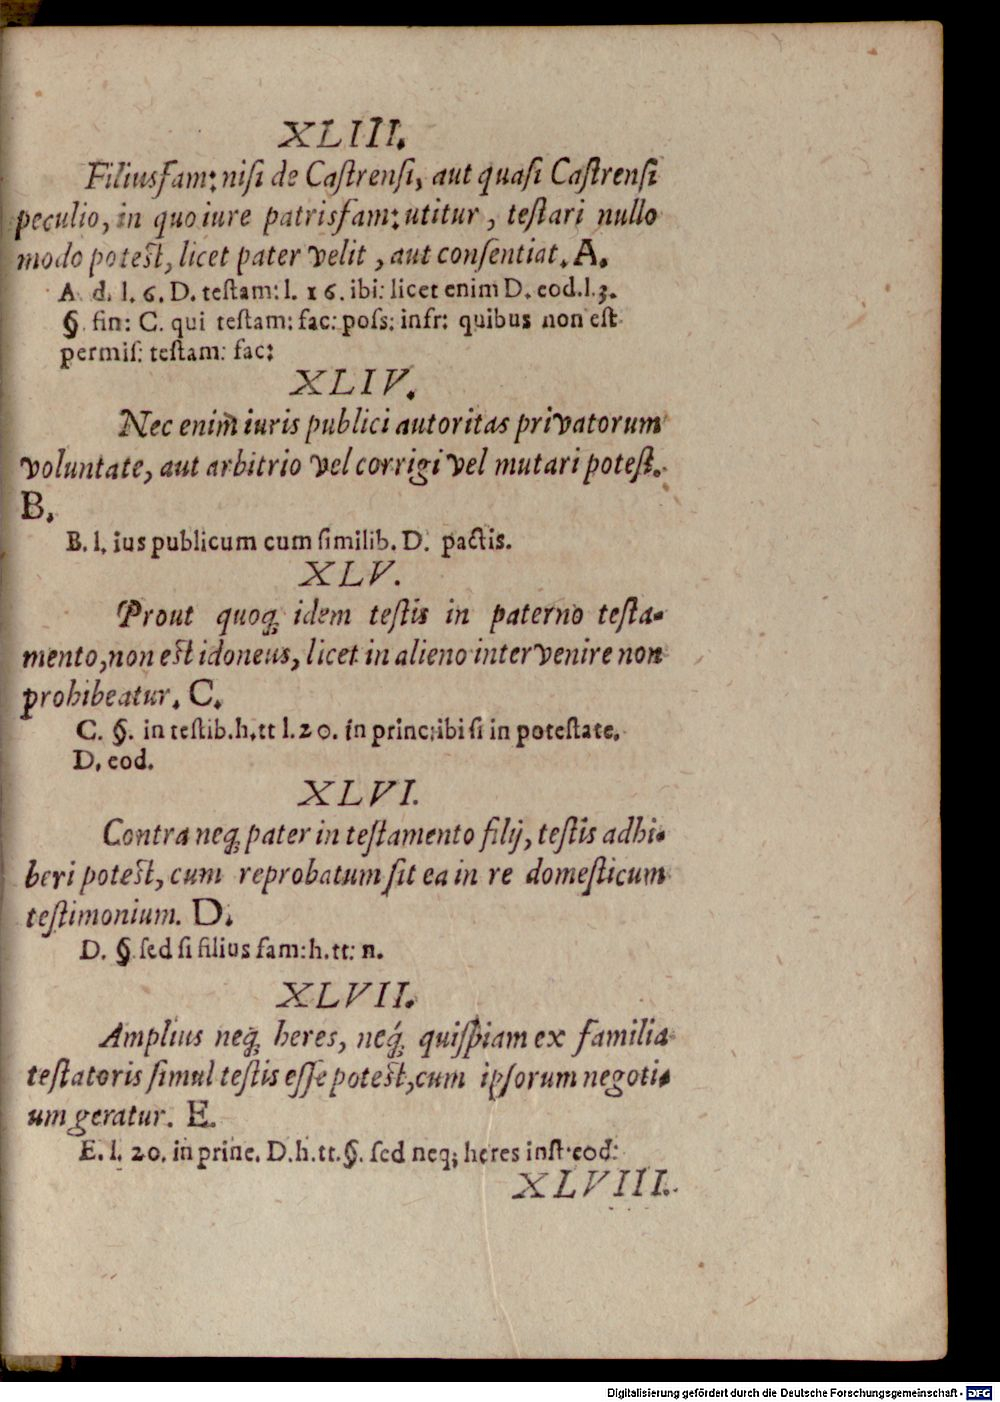 XLIII.
Filiusfam: nisi de Castrensi, aut quasi Castrensi
peculio, in quo iure patrisfam: utitur, testari nullo
modo potest, licet pater velit, aut consentiat. A.
A. d. l. 6. D. testam: l. 16. ibi: licet enim D. eod. l. 3.
§. fin: C. qui testam: fac: poss: infr: quibus non est
permis: testam: fac:
XLIV.
Nec enim iuris publici autoritas privatorum
voluntate, aut arbitrio vel corrigi vel mutari potest.
B.
B. l. ius publicum cum similib. D. pactis.
XLV.
Prout quoq; idem testis in paterno testa-
mento, non est idoneus, licet in alieno intervenire non
prohibeatur. C.
C. §. in testib. h. tt l. 20. in princ: ibi si in potestate.
D. eod.
XLVI.
Contra neq; pater in testamento filij, testis adhi-
beri potest, cum reprobatum sit ea in re domesticum
testimonium. D.
D. § sed si filius fam: h. tt: n.
XLVII.
Amplius neq; heres, neq́; quispiam ex familia
testatoris simul testis esse potest, cum ipsorum negoti-
um geratur. E.
E. l. 20. in princ. D. h. tt. §. sed neq; heres inst. eod:
XLVIII.
Digitalisierung gefördert durch die Deutsche Forschungsgemeinschaft - DFG